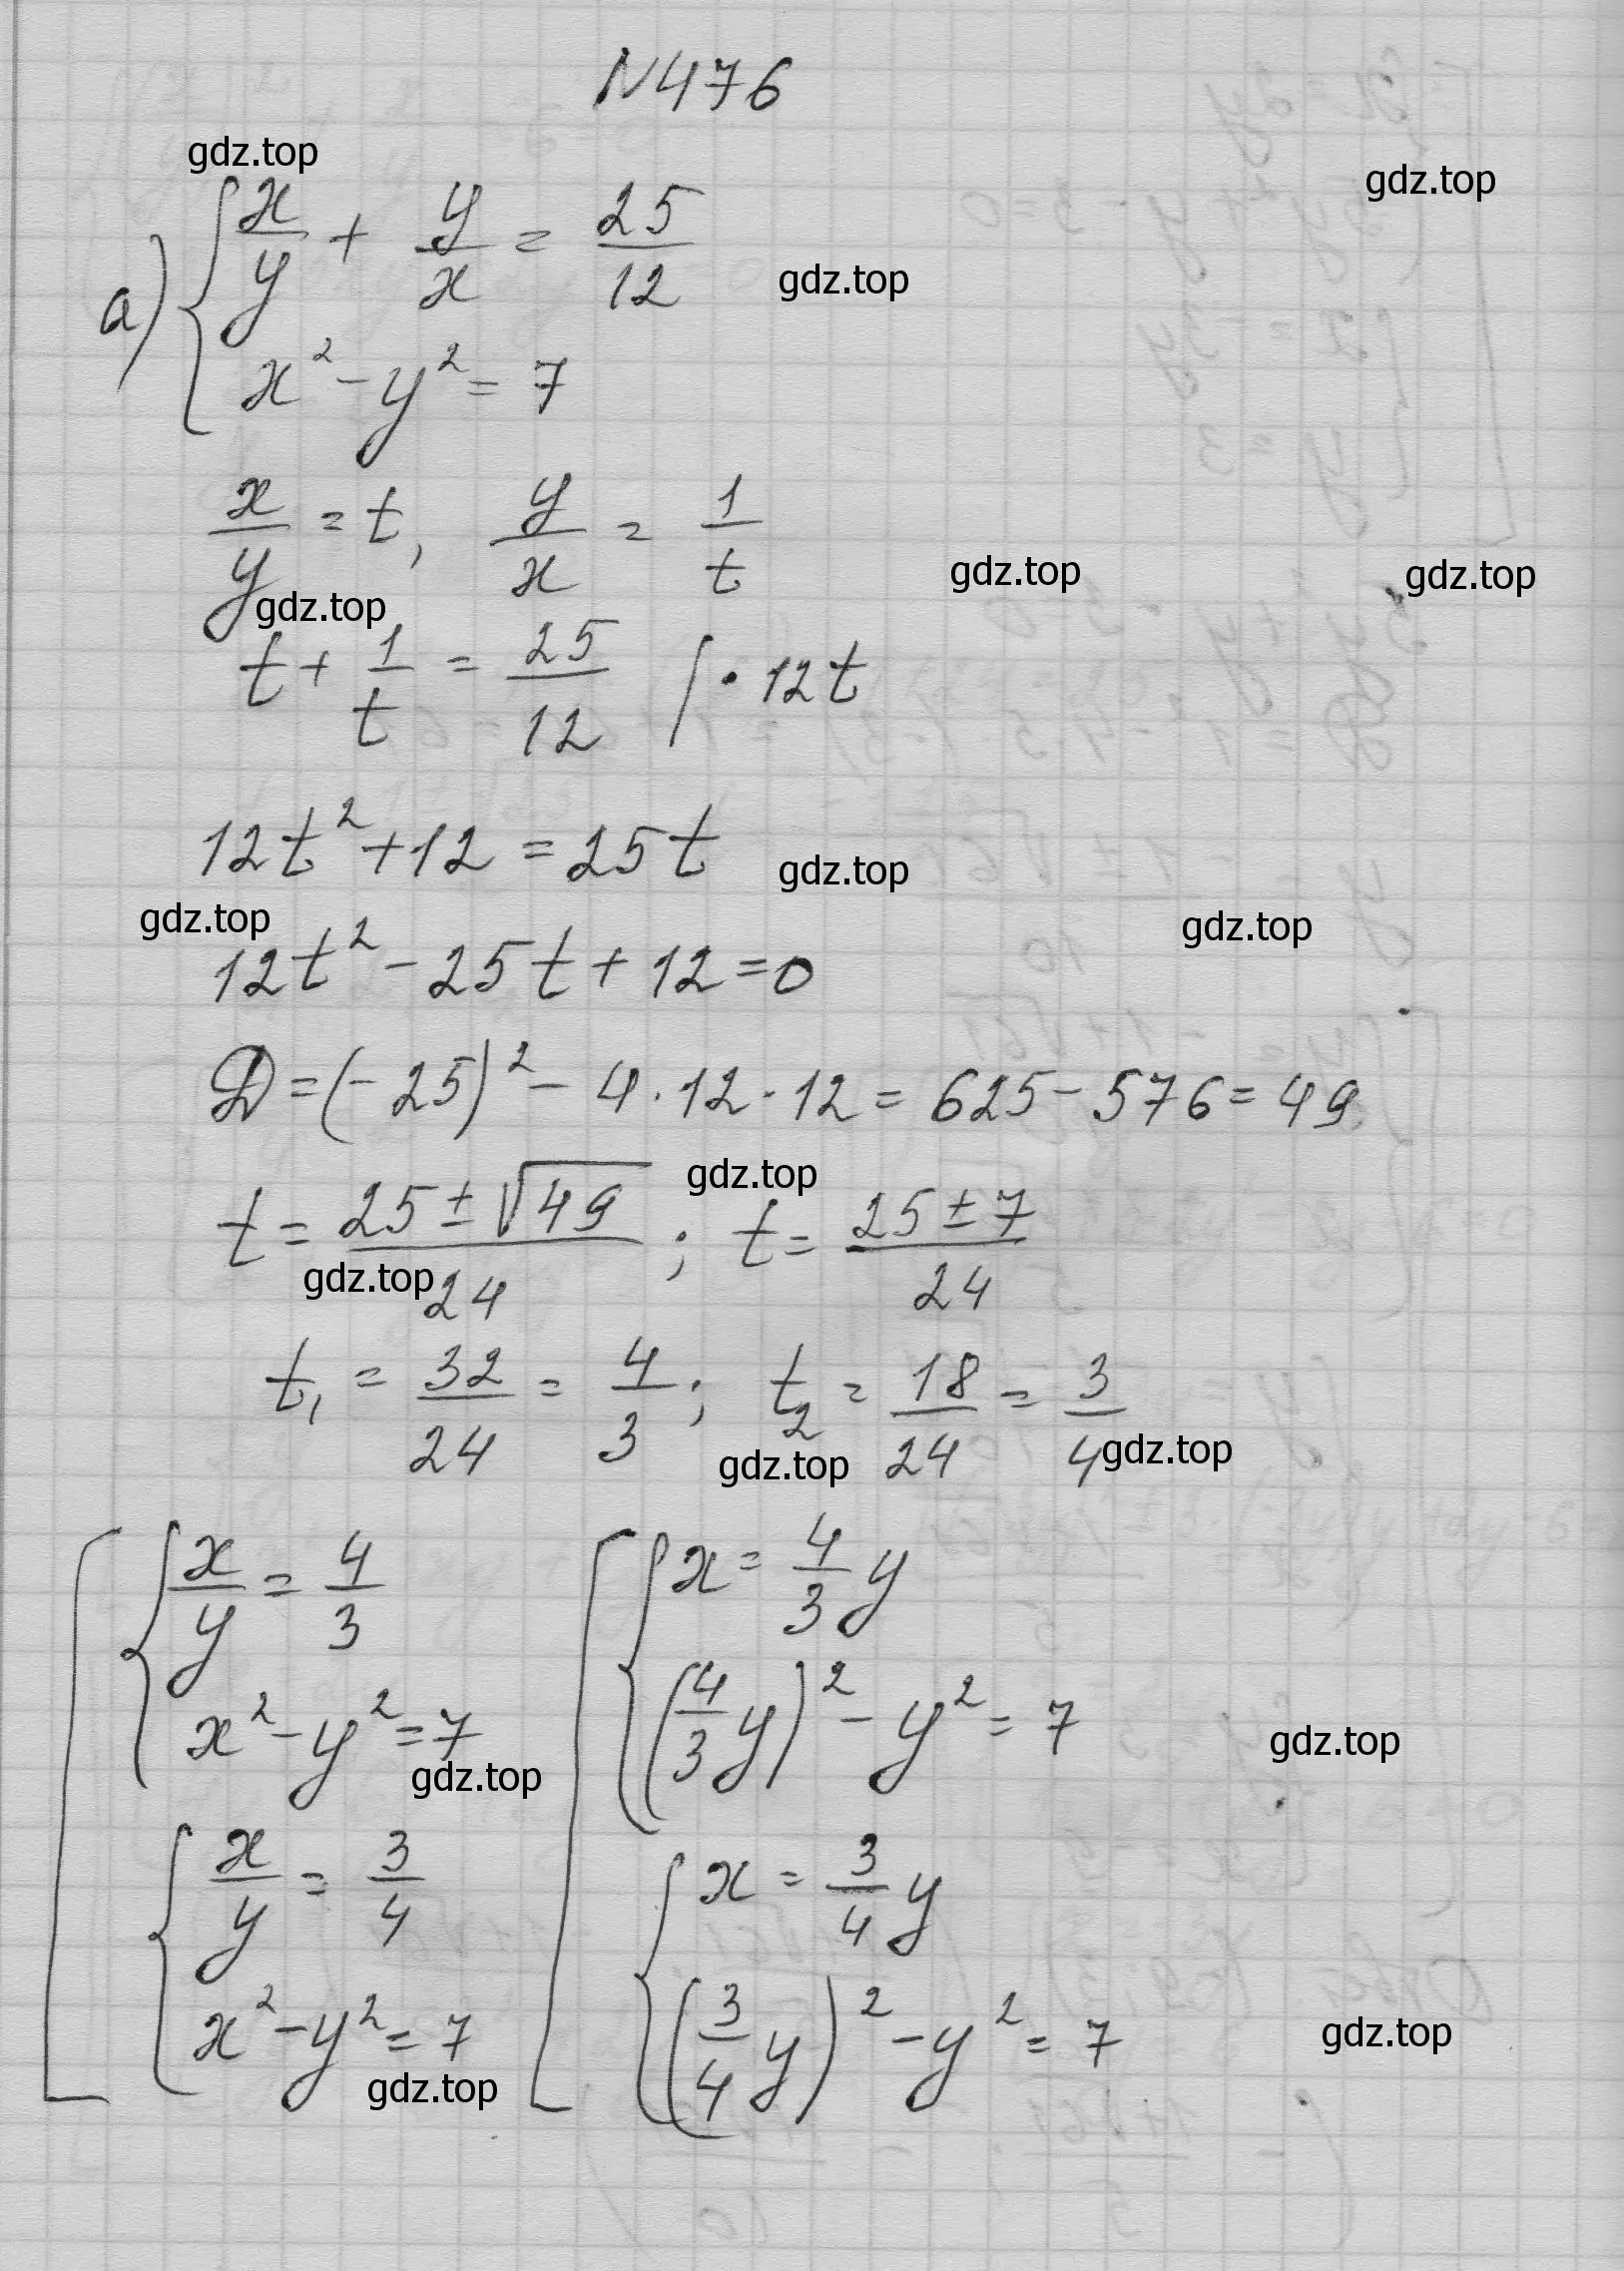 N476
gdz.top
gdz.top
а) { x/y + y/x = 25/12
gdz.top
x² - y² = 7
x/y = t, y/x = 1/t
gdz.top
gdz.top
gdz.top
t + 1/t = 25/12 | · 12t
12t² + 12 = 25t
gdz.top
gdz.top
gdz.top
12t² - 25t + 12 = 0
D = (-25)² - 4 · 12 · 12 = 625 - 576 = 49
gdz.top
t = (25 ± √49)/24 ; t = (25 ± 7)/24
gdz.top
t₁ = 32/24 = 4/3 ; t₂ = 18/24 = 3/4
gdz.top
gdz.top
[ { x/y = 4/3 [ { x = 4/3 y
x² - y² = 7 (4/3 y)² - y² = 7
gdz.top
gdz.top
{ x/y = 3/4 { x = 3/4 y
x² - y² = 7 (3/4 y)² - y² = 7
gdz.top
gdz.top